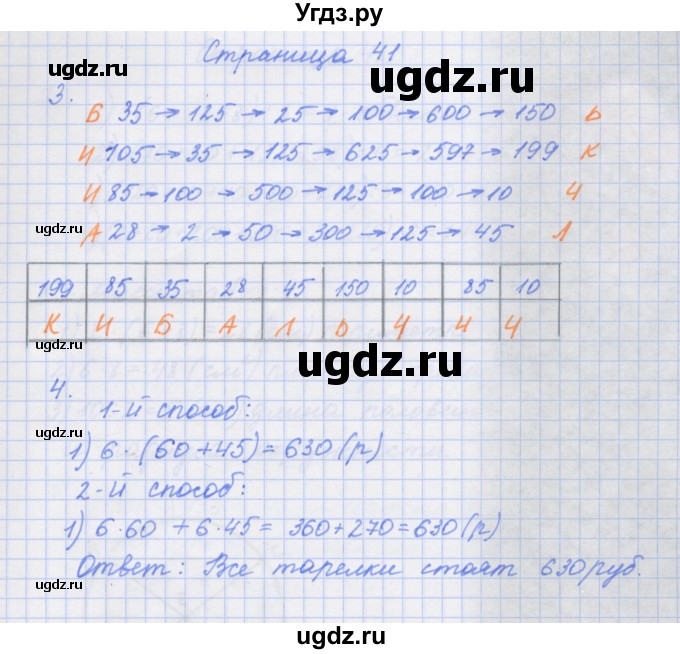 Угдз.ру
Страница 41
ugdz.ru
3.
Б 35 → 125 → 25 → 100 → 600 → 150 Ь
И 105 → 35 → 125 → 625 → 597 → 199 К
ugdz.ru
И 85 → 100 → 500 → 125 → 100 → 10 Ч
ugdz.ru
А 28 → 2 → 50 → 300 → 125 → 45 Л
ugdz.ru
199 85 35 28 45 150 10 85 10
К И Б А Л Ь Ч И Ч
ugdz.ru
4.
1-й способ:
ugdz.ru
1) 6 · (60 + 45) = 630 (р)
2-й способ:
ugdz.ru
1) 6·60 + 6·45 = 360 + 270 = 630 (р)
ugdz.ru
Ответ: Все тарелки стоят 630 руб.
ugdz.ru
ugdz.ru